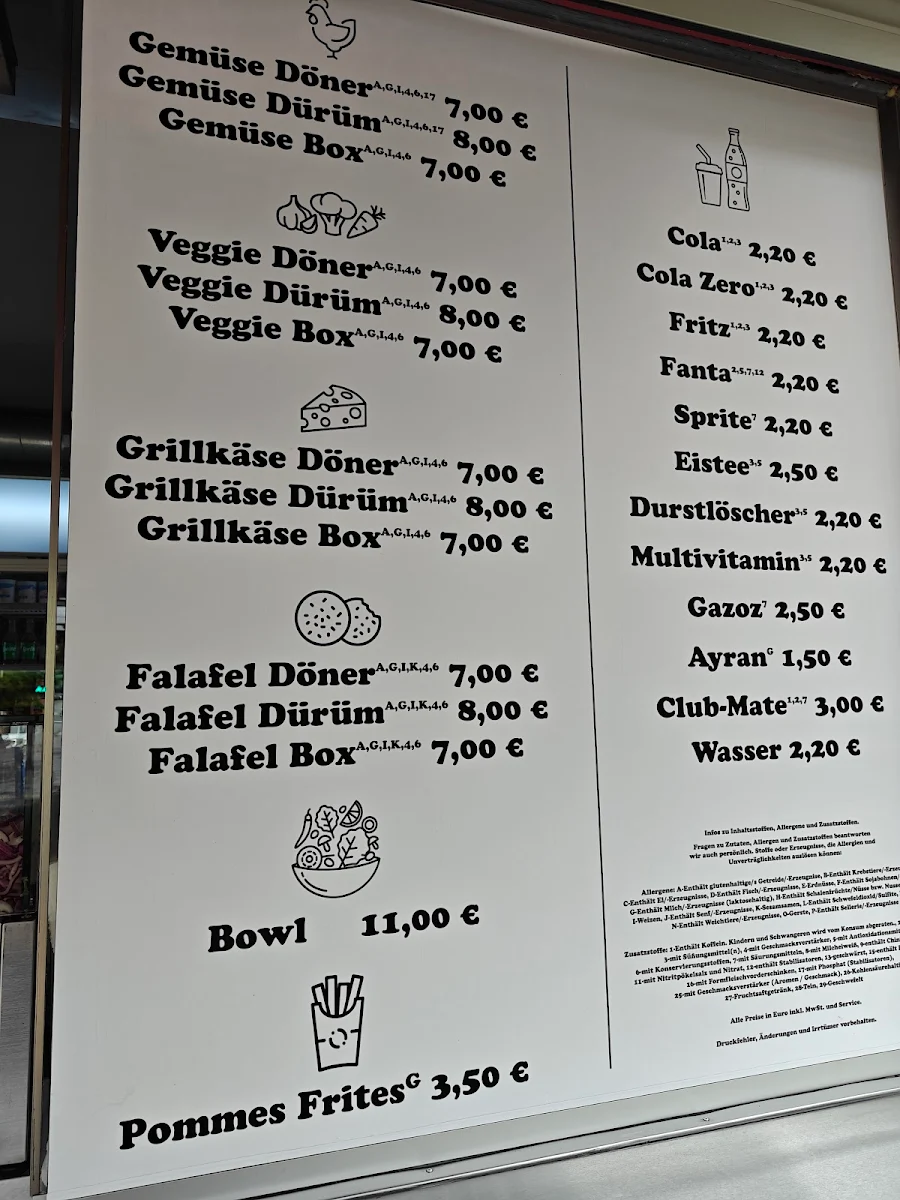 Gemüse Döner A,G,I,4,6,17 7,00 €
Gemüse Dürüm A,G,I,4,6,17 8,00 €
Gemüse Box A,G,I,4,6 7,00 €
Veggie Döner A,G,I,4,6 7,00 €
Veggie Dürüm A,G,I,4,6 8,00 €
Veggie Box A,G,I,4,6 7,00 €
Grillkäse Döner A,G,I,4,6 7,00 €
Grillkäse Dürüm A,G,I,4,6 8,00 €
Grillkäse Box A,G,I,4,6 7,00 €
Falafel Döner A,G,I,K,4,6 7,00 €
Falafel Dürüm A,G,I,K,4,6 8,00 €
Falafel Box A,G,I,K,4,6 7,00 €
Bowl 11,00 €
Pommes Frites G 3,50 €
Cola 1,2,3 2,20 €
Cola Zero 1,2,3 2,20 €
Fritz 1,2,3 2,20 €
Fanta 2,5,7,12 2,20 €
Sprite 7 2,20 €
Eistee 3,5 2,50 €
Durstlöscher 3,5 2,20 €
Multivitamin 3,5 2,20 €
Gazoz 7 2,50 €
Ayran G 1,50 €
Club-Mate 1,2,7 3,00 €
Wasser 2,20 €
Infos zu Inhaltsstoffen, Allergene und Zusatzstoffen.
Fragen zu Zutaten, Allergen und Zusatzstoffen beantworten
wir auch persönlich. Stoffe oder Erzeugnisse, die Allergien und
Unverträglichkeiten auslösen können:
Allergene: A-Enthält glutenhaltige/s Getreide/-Erzeugnisse, B-Enthält Krebstiere/
C-Enthält Ei/-Erzeugnisse, D-Enthält Fisch/-Erzeugnisse, E-Erdnüsse, F-Enthält Sojabohnen/
G-Enthält Milch/-Erzeugnisse (laktosehaltig), H-Enthält Schalenfrüchte/Nüsse bzw.
I-Weizen, J-Enthält Senf/-Erzeugnisse, K-Sesamsamen, L-Enthält Schwefeldioxid/Sulfite,
N-Enthält Weichtiere/-Erzeugnisse, O-Gerste, P-Enthält Sellerie/-Erzeugnisse
Zusatzstoffe: 1-Enthält Koffein. Kindern und Schwangeren wird vom Konsum abgeraten.,
3-mit Süßungsmittel(n), 4-mit Geschmacksverstärker, 5-mit Antioxidationsmitt
6-mit Konservierungsstoffen, 7-mit Säurungsmitteln, 8-mit Milcheiweiß, 9-enthält Chin
11-mit Nitritpökelsalz und Nitrat, 12-enthält Stabilisatoren, 13-geschwärzt, 15-enthält
16-mit Formfleischvorderschinken, 17-mit Phosphat (Stabilisatoren),
25-mit Geschmacksverstärker (Aromen / Geschmack), 26-Kohlensäurehalti
27-Fruchtsaftgetränk, 28-Tein, 29-Geschwefelt
Alle Preise in Euro inkl. MwSt. und Service.
Druckfehler, Änderungen und Irrtümer vorbehalten.